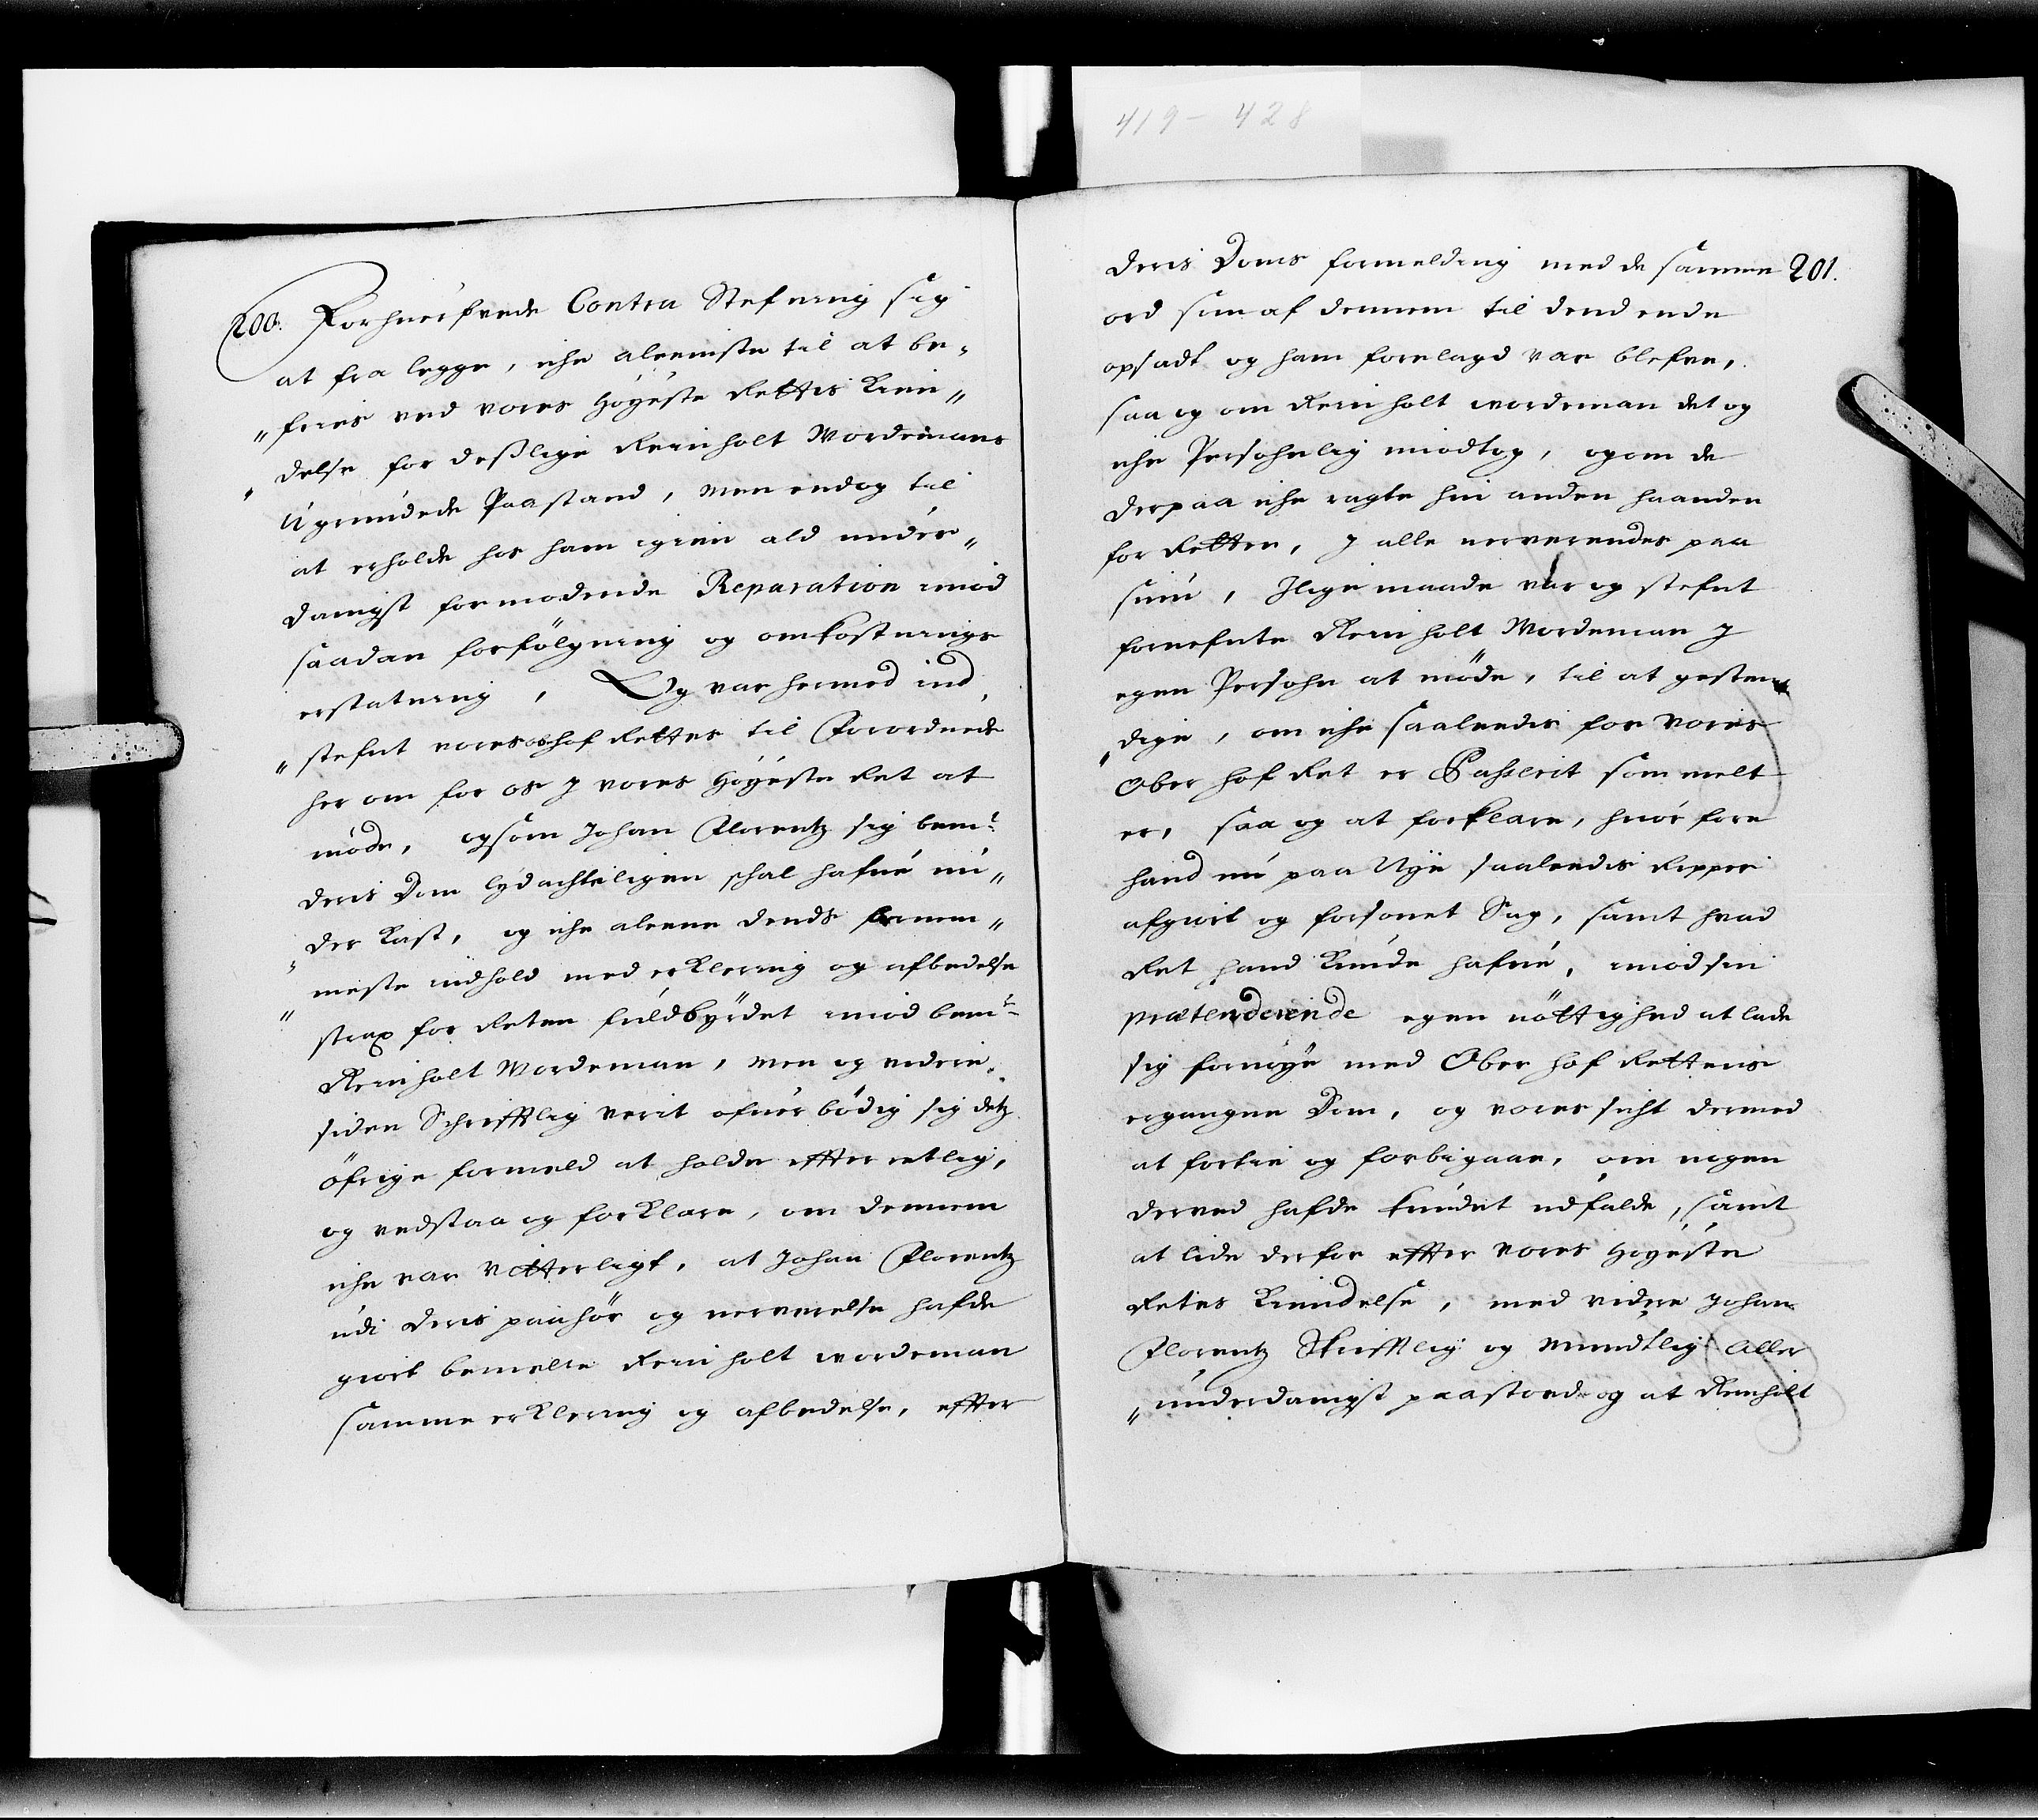 419 - 428
200. Forhuerfvede Contra Stefning sig
at fra legge, iche aleeniste til at be-
„fries ved vores Höyeste Rettis Kien„
„delse for desslige Reinholt Wordemans
Ugrundede Paastand, men endog til
at erholde hos ham igien ald under„
danigst formodende Reparation imod
saadan forfölgning og omkostnings
erstatning, Og var hermed ind,
„stefnt vores ober hof Rettes til Forordnede
her om for os J vores Höyeste Ret at
möde, og som Johan Florentz sig bem:te
deris Dom lydachteligen schal hafve un„
„der Kast, og iche aleene dends fornem„
„meste indhold med erKlering og afbedelse
strax for Reten fuldbyrdet imod bem:te
Reinholt Wordeman, men og videre
siden Schrifftlig verit ofverbödig sig detz
öfrige formeld at holde effterretlig,
og vedstaa og forKlare, om dennem
iche var vitterligt, at Johan Florentz
udi deris paahör og nerverelse hafde
giort bemelte Reinholt wordeman
samme erKlering og afbedelse, effter
deris Doms formelding med de samme 201.
ord som af dennem til dend ende
opsadt og ham forelagd var blefven,
saa og om Reinholt wordeman det og
iche Persohnlig imodtog, og om de
derpaa iche ragte hin anden haanden
for Retten, J alle nerverendes paa
siun, Jlige maade var og stefnt
fornefnte Reinholt Wordeman J
egen Persohn at möde, til at gesten
„dige, om iche saaleedis for vores
Ober hof Ret er Passerit som melt
er, saa og at forklare, huor fore
hand nu paa Nye saaleedis Ripper
afgiort og forsonet Sag, samt hvad
Ret hand Kunde hafve, imod sin
prætenderende egen nöttighed at lade
sig fornöye med Ober hof Rettens
ergangne Dom, og vores sicht dermed
at fortie og forbigaae, om nogen
derved hafde kundet udfalde, samt
at lide derfor effter vores Höyeste
Retes Kiendelse, med videre Johan
Florentz Skrifftlig og Mundtlig Aller
„underdanigst paastoed og at Reinholt